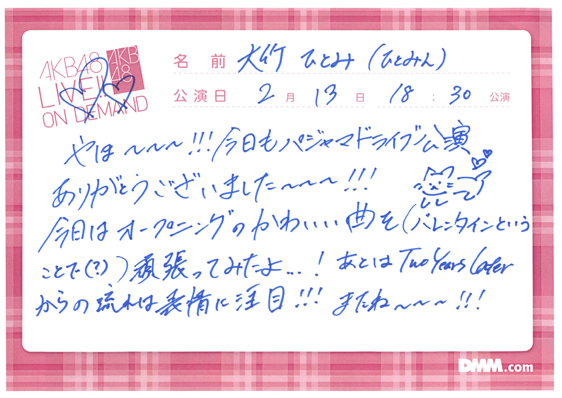 AKB48
LIVE!!
ON DEMAND
AKB
48
名前 大竹 ひとみ (ひとみん)
公演日 2月 13日 18:30 公演
やほ〜〜〜!!!今日もパジャマドライブ公演
ありがとうございました〜〜〜!!!
今日はオープニングのかわいい曲を(バレンタインという
ことで(?))頑張ってみたよ...!あとは Two Years Later
からの流れは表情に注目!!!またね〜〜〜!!!
DMM.com